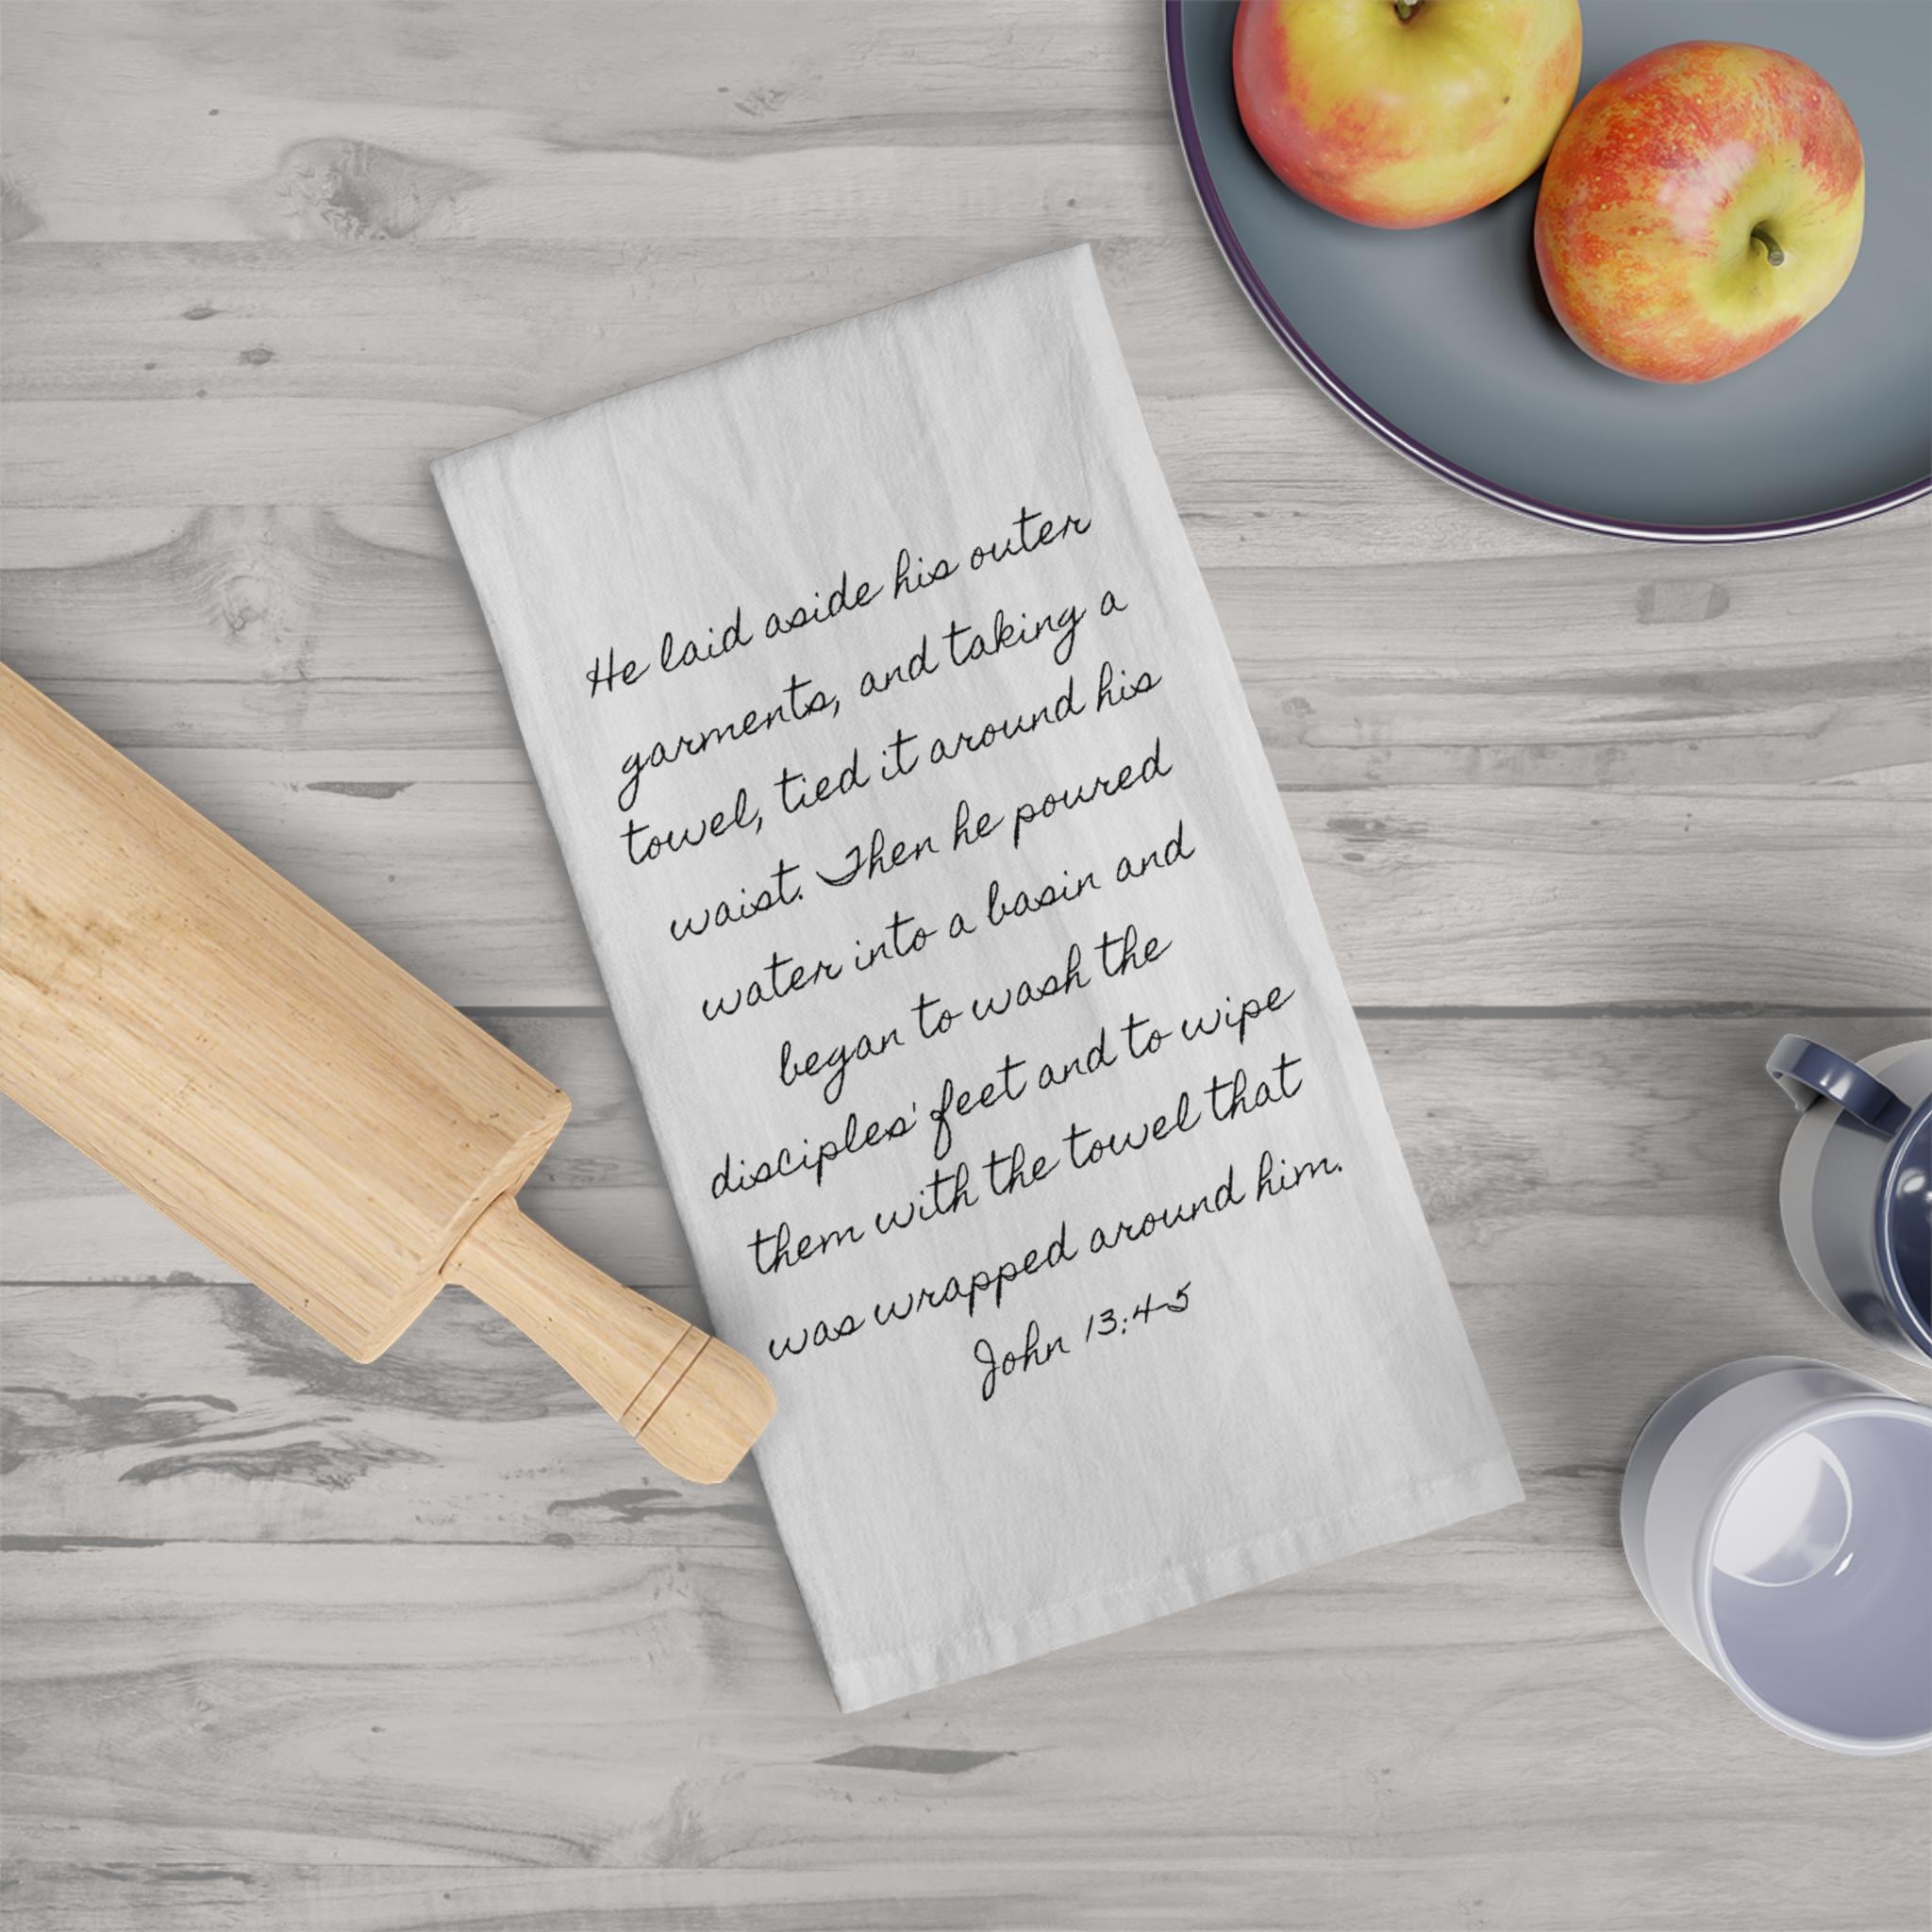 He laid aside his outer
garments, and taking a
towel, tied it around his
waist. Then he poured
water into a basin and
began to wash the
disciples' feet and to wipe
them with the towel that
was wrapped around him.
John 13:4-5